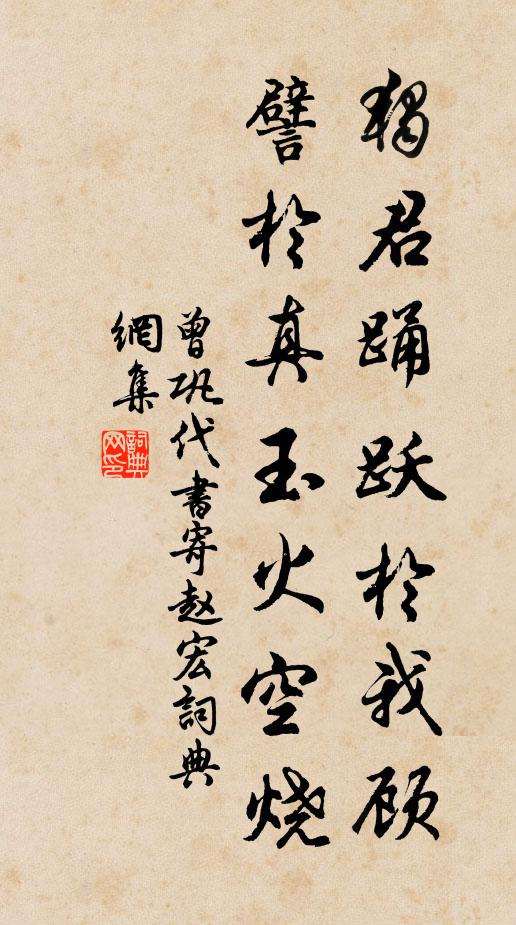 独君踊跃於我顾
譬於真玉火空烧
曾巩代書寄赵宏詞典
網集
詞典
网印